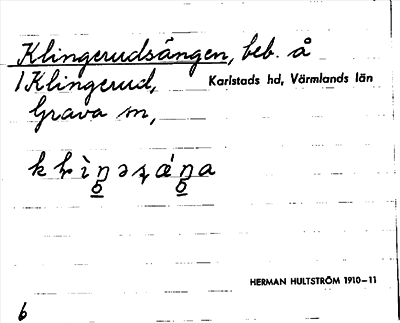 Klingerudsängen, beb. å
1 Klingerud, Karlstads hd, Värmlands län
Grava sn,
HERMAN HULTSTRÖM 1910–11
6